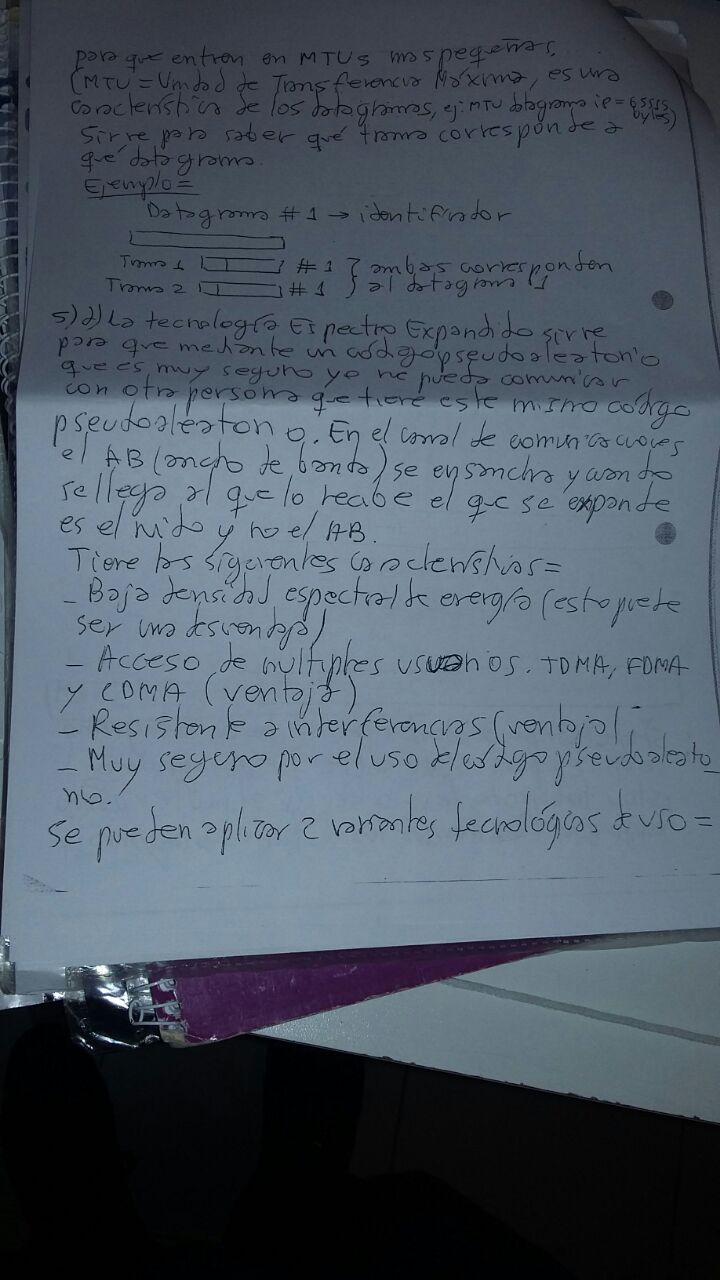 para que entren en MTUs mas pequeñas,
(MTU = Unidad de Transferencia Máxima, es una
característica de los datagramas, ej: MTU datagrama ip = 65515 bytes)
Sirve para saber qué trama corresponde a
qué datagrama.
Ejemplo =
Datagrama # 1 → identificador
Trama 1 # 1 } ambas corresponden
Trama 2 # 1 } al datagrama 1
5) a) La tecnología Espectro Expandido sirve
para que mediante un código pseudoaleatorio
que es muy seguro yo me pueda comunicar
con otra persona que tiene este mismo código
pseudoaleatorio. En el canal de comunicaciones
el AB (ancho de banda) se ensancha y cuando
se llega al que lo recibe el que se expande
es el ruido y no el AB.
Tiene las siguientes características =
- Baja densidad espectral de energía (esto puede
ser una desventaja)
- Acceso de multiples usuarios. TDMA, FDMA
y CDMA (ventaja)
- Resistente a interferencias (ventaja)
- Muy seguro por el uso del código pseudoaleato_
rio.
Se pueden aplicar 2 variantes tecnológicas de uso =